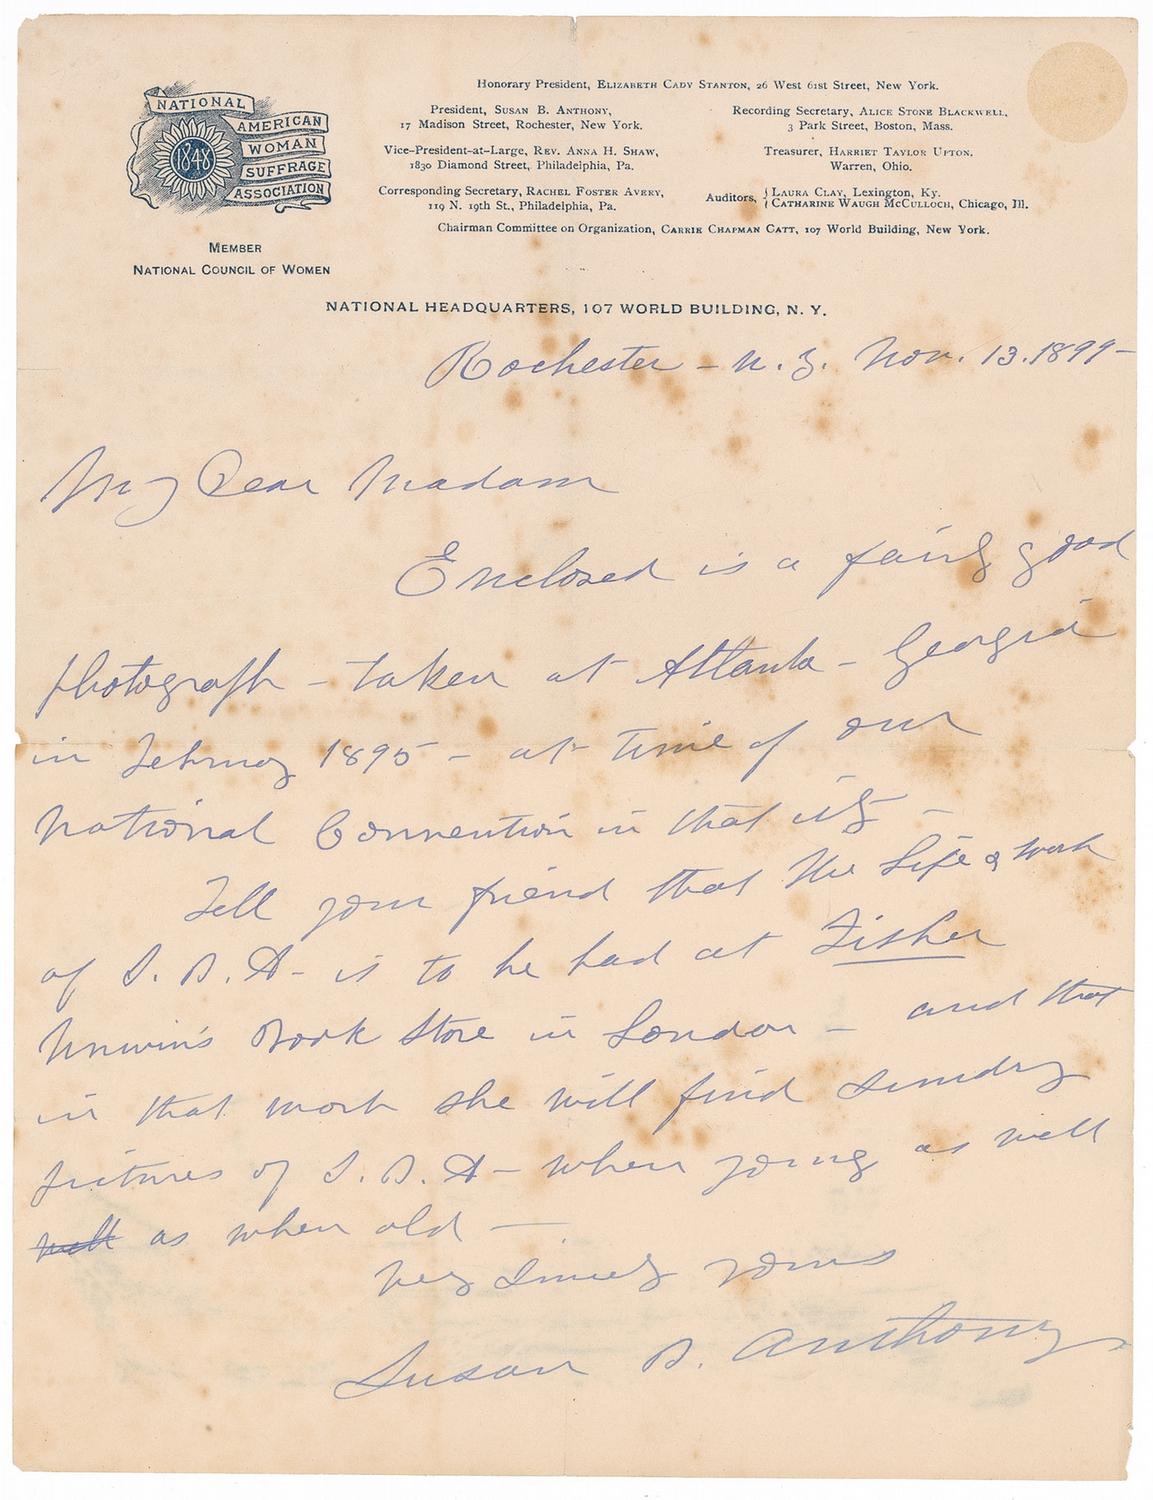 NATIONAL
AMERICAN
WOMAN
1848
SUFFRAGE
ASSOCIATION
MEMBER
NATIONAL COUNCIL OF WOMEN
Honorary President, ELIZABETH CADY STANTON, 26 West 61st Street, New York.
President, SUSAN B. ANTHONY,
17 Madison Street, Rochester, New York.
Recording Secretary, ALICE STONE BLACKWELL,
3 Park Street, Boston, Mass.
Vice-President-at-Large, REV. ANNA H. SHAW,
1830 Diamond Street, Philadelphia, Pa.
Treasurer, HARRIET TAYLOR UPTON,
Warren, Ohio.
Corresponding Secretary, RACHEL FOSTER AVERY,
119 N. 19th St., Philadelphia, Pa.
Auditors, { LAURA CLAY, Lexington, Ky.
{ CATHARINE WAUGH MCCULLOCH, Chicago, Ill.
Chairman Committee on Organization, CARRIE CHAPMAN CATT, 107 World Building, New York.
NATIONAL HEADQUARTERS, 107 WORLD BUILDING, N. Y.
Rochester - N. Y. Nov. 13. 1899 -
My Dear Madam
Enclosed is a fairly good
photograph - taken at Atlanta - Georgia
in February 1895 - at time of our
National Convention in that city -
Tell your friend that the Life & Work
of S. B. A - is to be had at Fisher
Unwin's Book Store in London - and that
in that work she will find sundry
pictures of S. B. A - when young as well
well as when old -
Very Sincerely yours
Susan B. Anthony